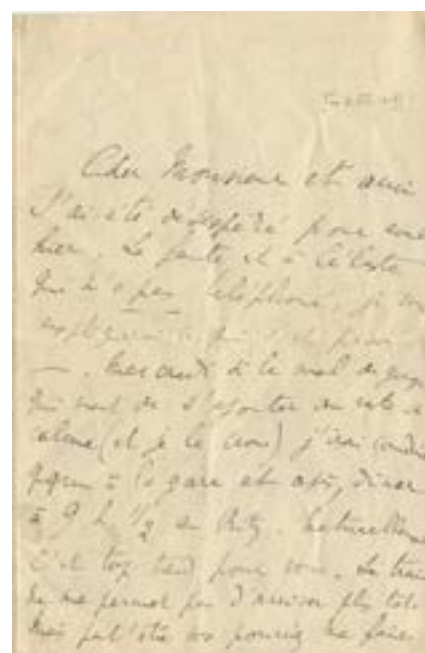 Cher Monsieur et ami
J'ai été désespéré pour
hier. La faute est à Céleste
qui n'a pas téléphoné, je
expliquerai
Mercredi si le mal de gorge
qui vient de s'ajouter au reste se
calme (et je le crois) j'irai conduire
à la gare et après, dîner
à 9 h 1/2 au Ritz. Naturellement
c'est trop tard pour vous. Le train
ne me permet pas d'arriver plus tôt.
Mais peut'être vous pourriez me faire